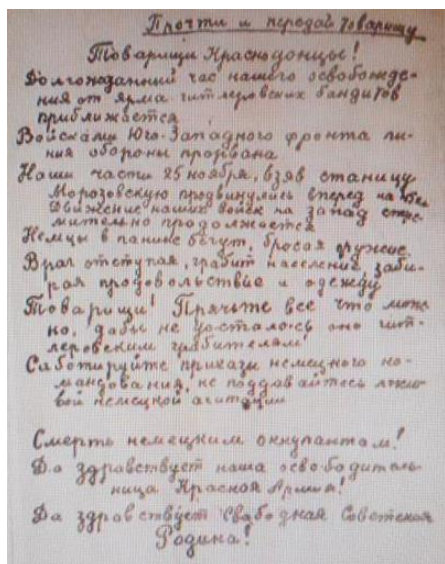 Прочти и передай товарищу
Товарищи Краснодонцы!
Долгожданный час нашего освобожде-
ния от ярма гитлеровских бандитов
приближается
Войсками Юго-Западного фронта ли-
ния обороны прорвана
Наши части 25 ноября, взяв станицу
Морозовскую продвинулись вперед на
Движение наших войск на запад стре-
мительно продолжается
Немцы в панике бегут, бросая оружие
Враг отступая, грабит население, заби-
рая продовольствие и одежду
Товарищи! Прячьте все что мож-
но, дабы не досталось оно гит-
леровским грабителям
Саботируйте приказы немецкого ко-
мандования, не поддавайтесь лжи-
вой немецкой агитации
Смерть немецким оккупантам!
Да здравствует наша освободитель-
ница Красная Армия!
Да здравствует свободная Советская
Родина!